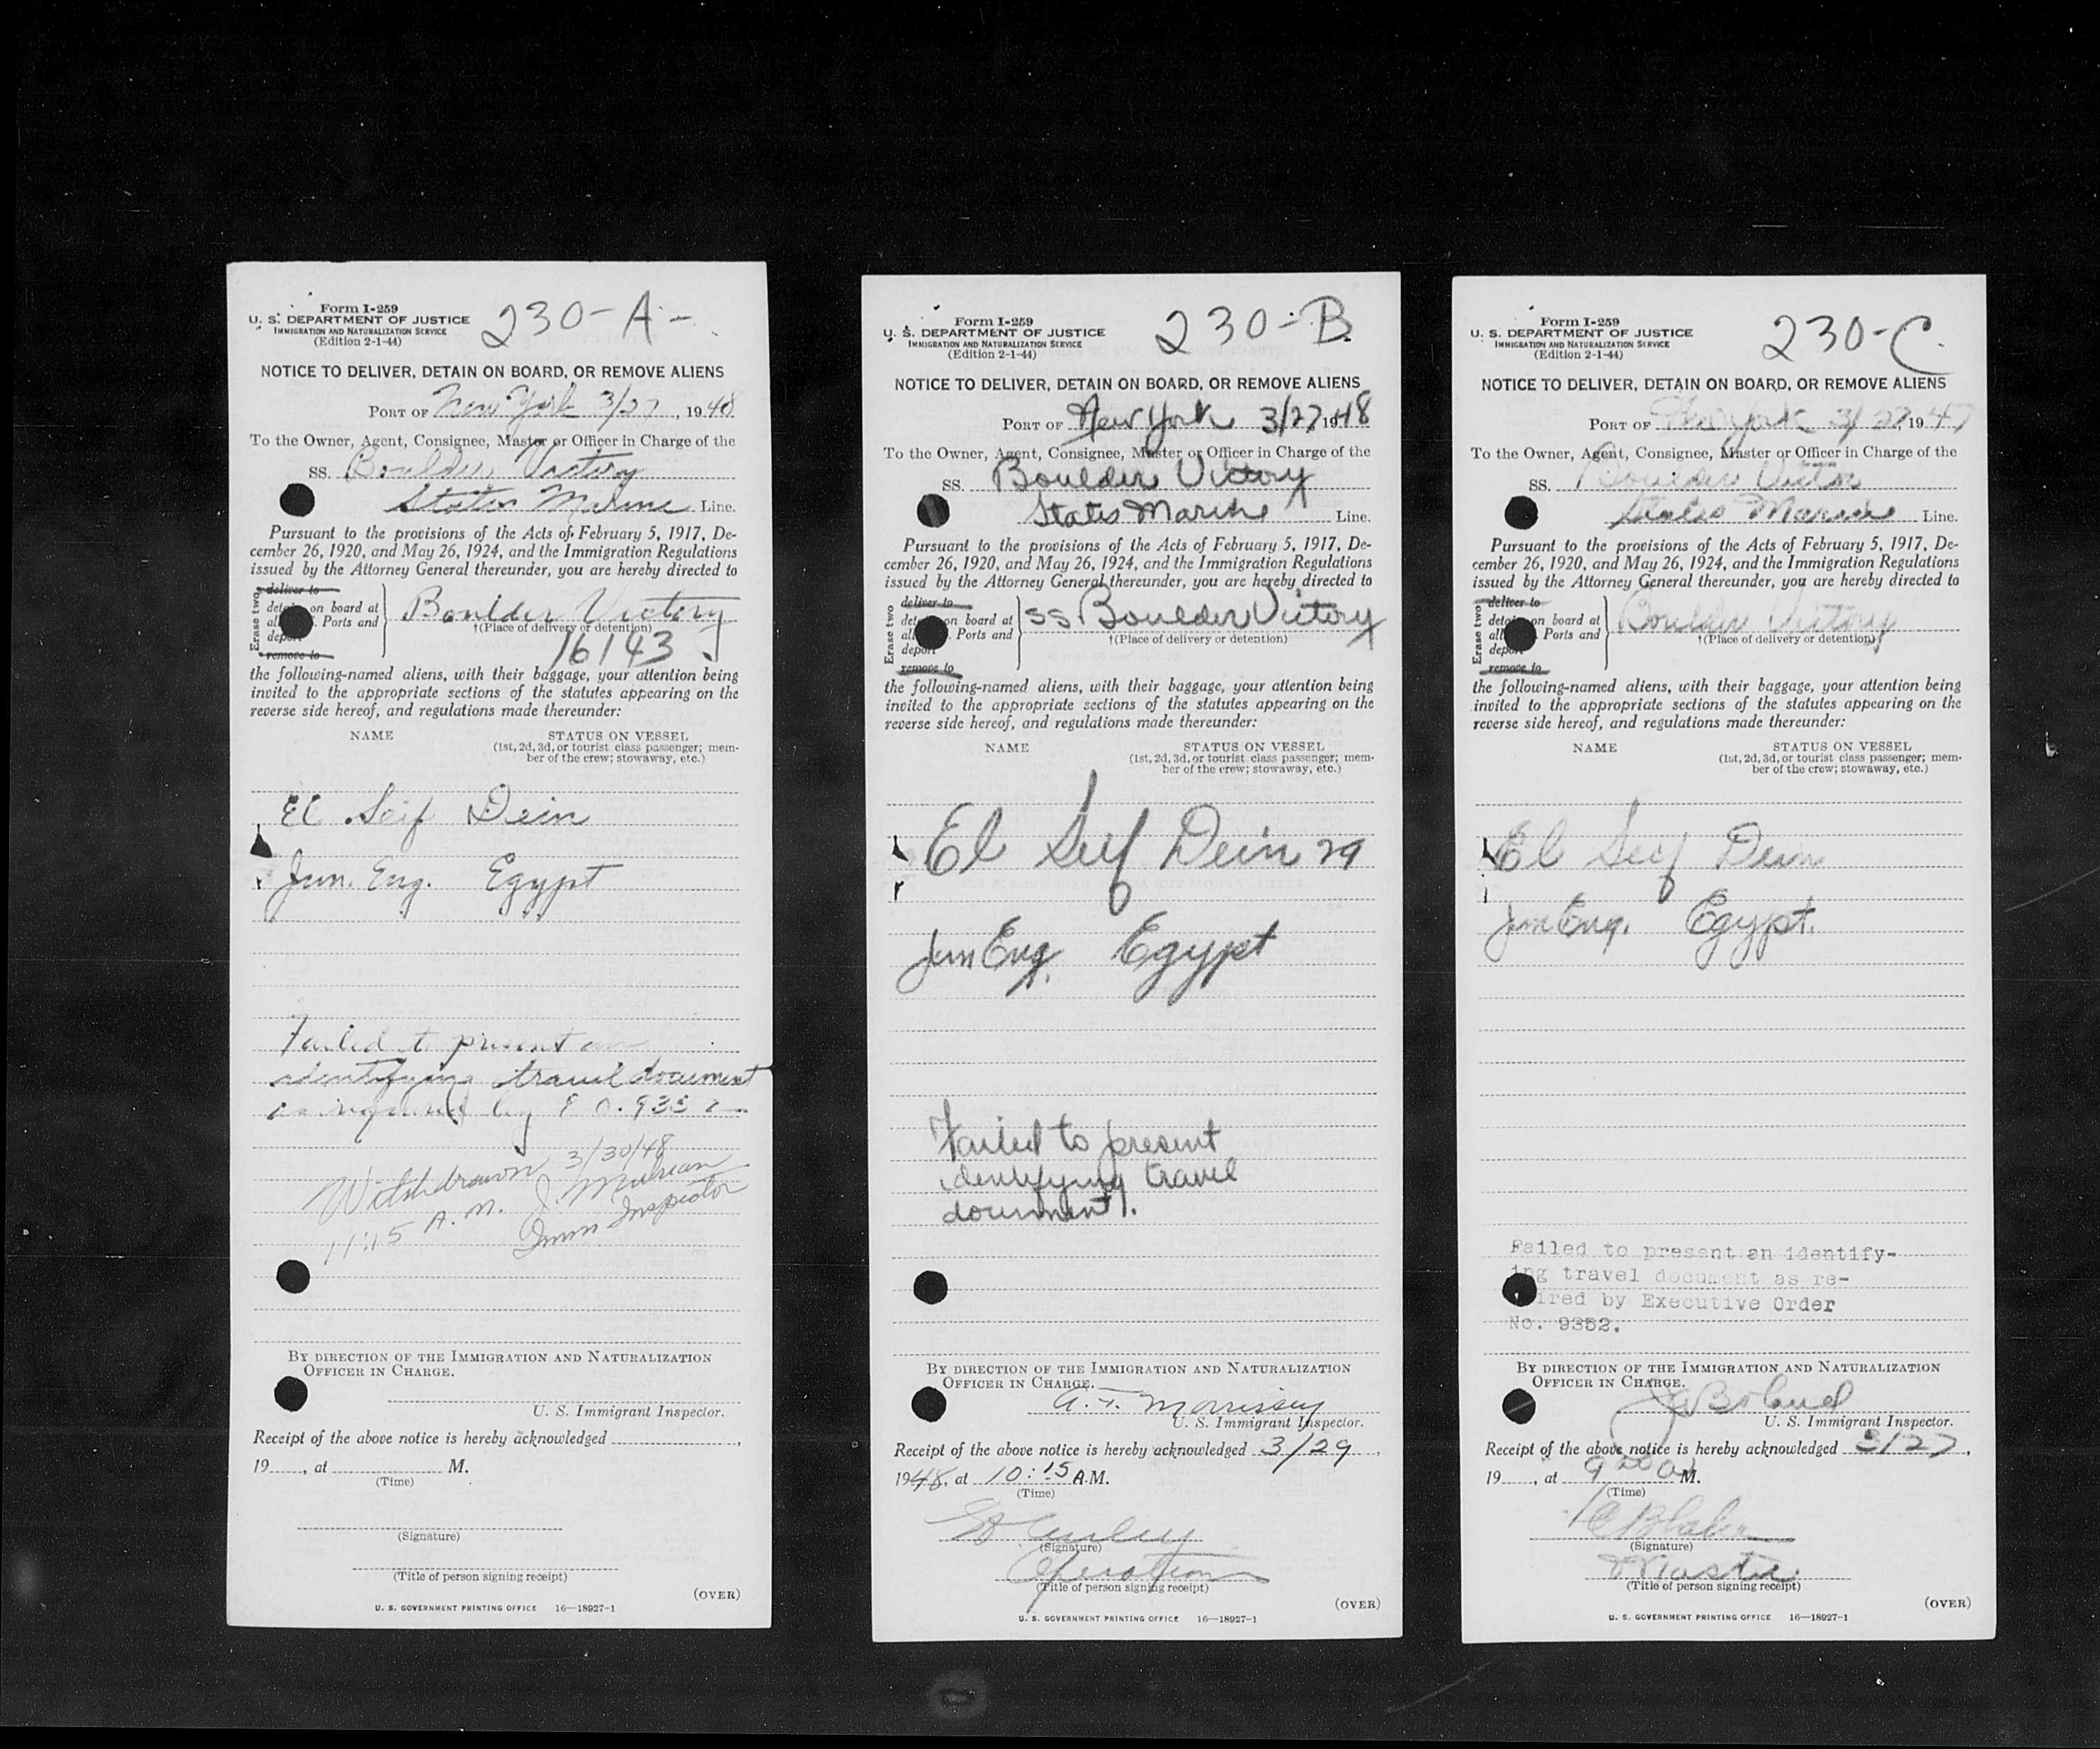 Form I-259
U. S. DEPARTMENT OF JUSTICE
IMMIGRATION AND NATURALIZATION SERVICE
(Edition 2-1-44)
230-A-
NOTICE TO DELIVER, DETAIN ON BOARD, OR REMOVE ALIENS
PORT OF New York 3/27, 1948
To the Owner, Agent, Consignee, Master or Officer in Charge of the
SS. Boulder Victory
States Marine Line.
Pursuant to the provisions of the Acts of February 5, 1917, De-
cember 26, 1920, and May 26, 1924, and the Immigration Regulations
issued by the Attorney General thereunder, you are hereby directed to
Erase two
deliver to
on board at
Ports and
remove to
Boulder Victory
†(Place of delivery or detention)
16143
the following-named aliens, with their baggage, your attention being
invited to the appropriate sections of the statutes appearing on the
reverse side hereof, and regulations made thereunder:
NAME STATUS ON VESSEL
(1st, 2d, 3d, or tourist class passenger; mem-
ber of the crew; stowaway, etc.)
El Seif Dein
Jun. Eng. Egypt
Failed to present an
identifying travel document
as required by E O. 9352
Withdrawn 3/30/48
11:15 A.M. J.
Imm Inspector
BY DIRECTION OF THE IMMIGRATION AND NATURALIZATION
OFFICER IN CHARGE.
U. S. Immigrant Inspector.
Receipt of the above notice is hereby acknowledged ,
19 , at M.
(Time)
(Signature)
(Title of person signing receipt)
(OVER)
U. S. GOVERNMENT PRINTING OFFICE 16—18927-1
Form I-259
U. S. DEPARTMENT OF JUSTICE
IMMIGRATION AND NATURALIZATION SERVICE
(Edition 2-1-44)
230-B
NOTICE TO DELIVER, DETAIN ON BOARD, OR REMOVE ALIENS
PORT OF New York 3/27 1948
To the Owner, Agent, Consignee, Master or Officer in Charge of the
SS. Boulder Victory
States Marine Line.
Pursuant to the provisions of the Acts of February 5, 1917, De-
cember 26, 1920, and May 26, 1924, and the Immigration Regulations
issued by the Attorney General thereunder, you are hereby directed to
Erase two
deliver to
on board at
Ports and
remove to
SS Boulder Victory
†(Place of delivery or detention)
the following-named aliens, with their baggage, your attention being
invited to the appropriate sections of the statutes appearing on the
reverse side hereof, and regulations made thereunder:
NAME STATUS ON VESSEL
(1st, 2d, 3d, or tourist class passenger; mem-
ber of the crew; stowaway, etc.)
El Seif Dein 29
Jun Eng. Egypt
Failed to present
identifying travel
document.
BY DIRECTION OF THE IMMIGRATION AND NATURALIZATION
OFFICER IN CHARGE.
A. T. Morrissey
U. S. Immigrant Inspector.
Receipt of the above notice is hereby acknowledged 3/29,
1948, at 10:15 A.M.
(Time)
(Signature)
Operations
(Title of person signing receipt)
(OVER)
U. S. GOVERNMENT PRINTING OFFICE 16—18927-1
Form I-259
U. S. DEPARTMENT OF JUSTICE
IMMIGRATION AND NATURALIZATION SERVICE
(Edition 2-1-44)
230-C.
NOTICE TO DELIVER, DETAIN ON BOARD, OR REMOVE ALIENS
PORT OF New York 3/27, 1947
To the Owner, Agent, Consignee, Master or Officer in Charge of the
SS. Boulder Victor
States Marine Line.
Pursuant to the provisions of the Acts of February 5, 1917, De-
cember 26, 1920, and May 26, 1924, and the Immigration Regulations
issued by the Attorney General thereunder, you are hereby directed to
Erase two
deliver to
on board at
Ports and
remove to
Boulder Victory
†(Place of delivery or detention)
the following-named aliens, with their baggage, your attention being
invited to the appropriate sections of the statutes appearing on the
reverse side hereof, and regulations made thereunder:
NAME STATUS ON VESSEL
(1st, 2d, 3d, or tourist class passenger; mem-
ber of the crew; stowaway, etc.)
El Seif Dein
Jun Eng. Egypt.
Failed to present an identify-
ing travel document as re-
ired by Executive Order
No. 9352.
BY DIRECTION OF THE IMMIGRATION AND NATURALIZATION
OFFICER IN CHARGE.
Boland
U. S. Immigrant Inspector.
Receipt of the above notice is hereby acknowledged 3/27,
19 , at 9 M.
(Time)
(Signature)
Master
(Title of person signing receipt)
(OVER)
U. S. GOVERNMENT PRINTING OFFICE 16—18927-1